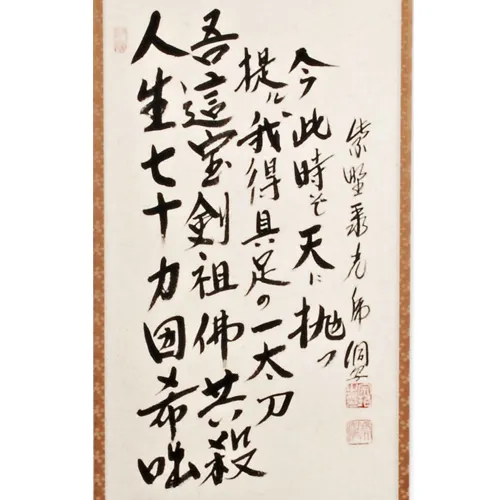 人生七十力囗希咄
吾這宝剣祖佛共殺
提ル我得具足の一太刀
今此時ぞ天に抛つ
紫野聚光